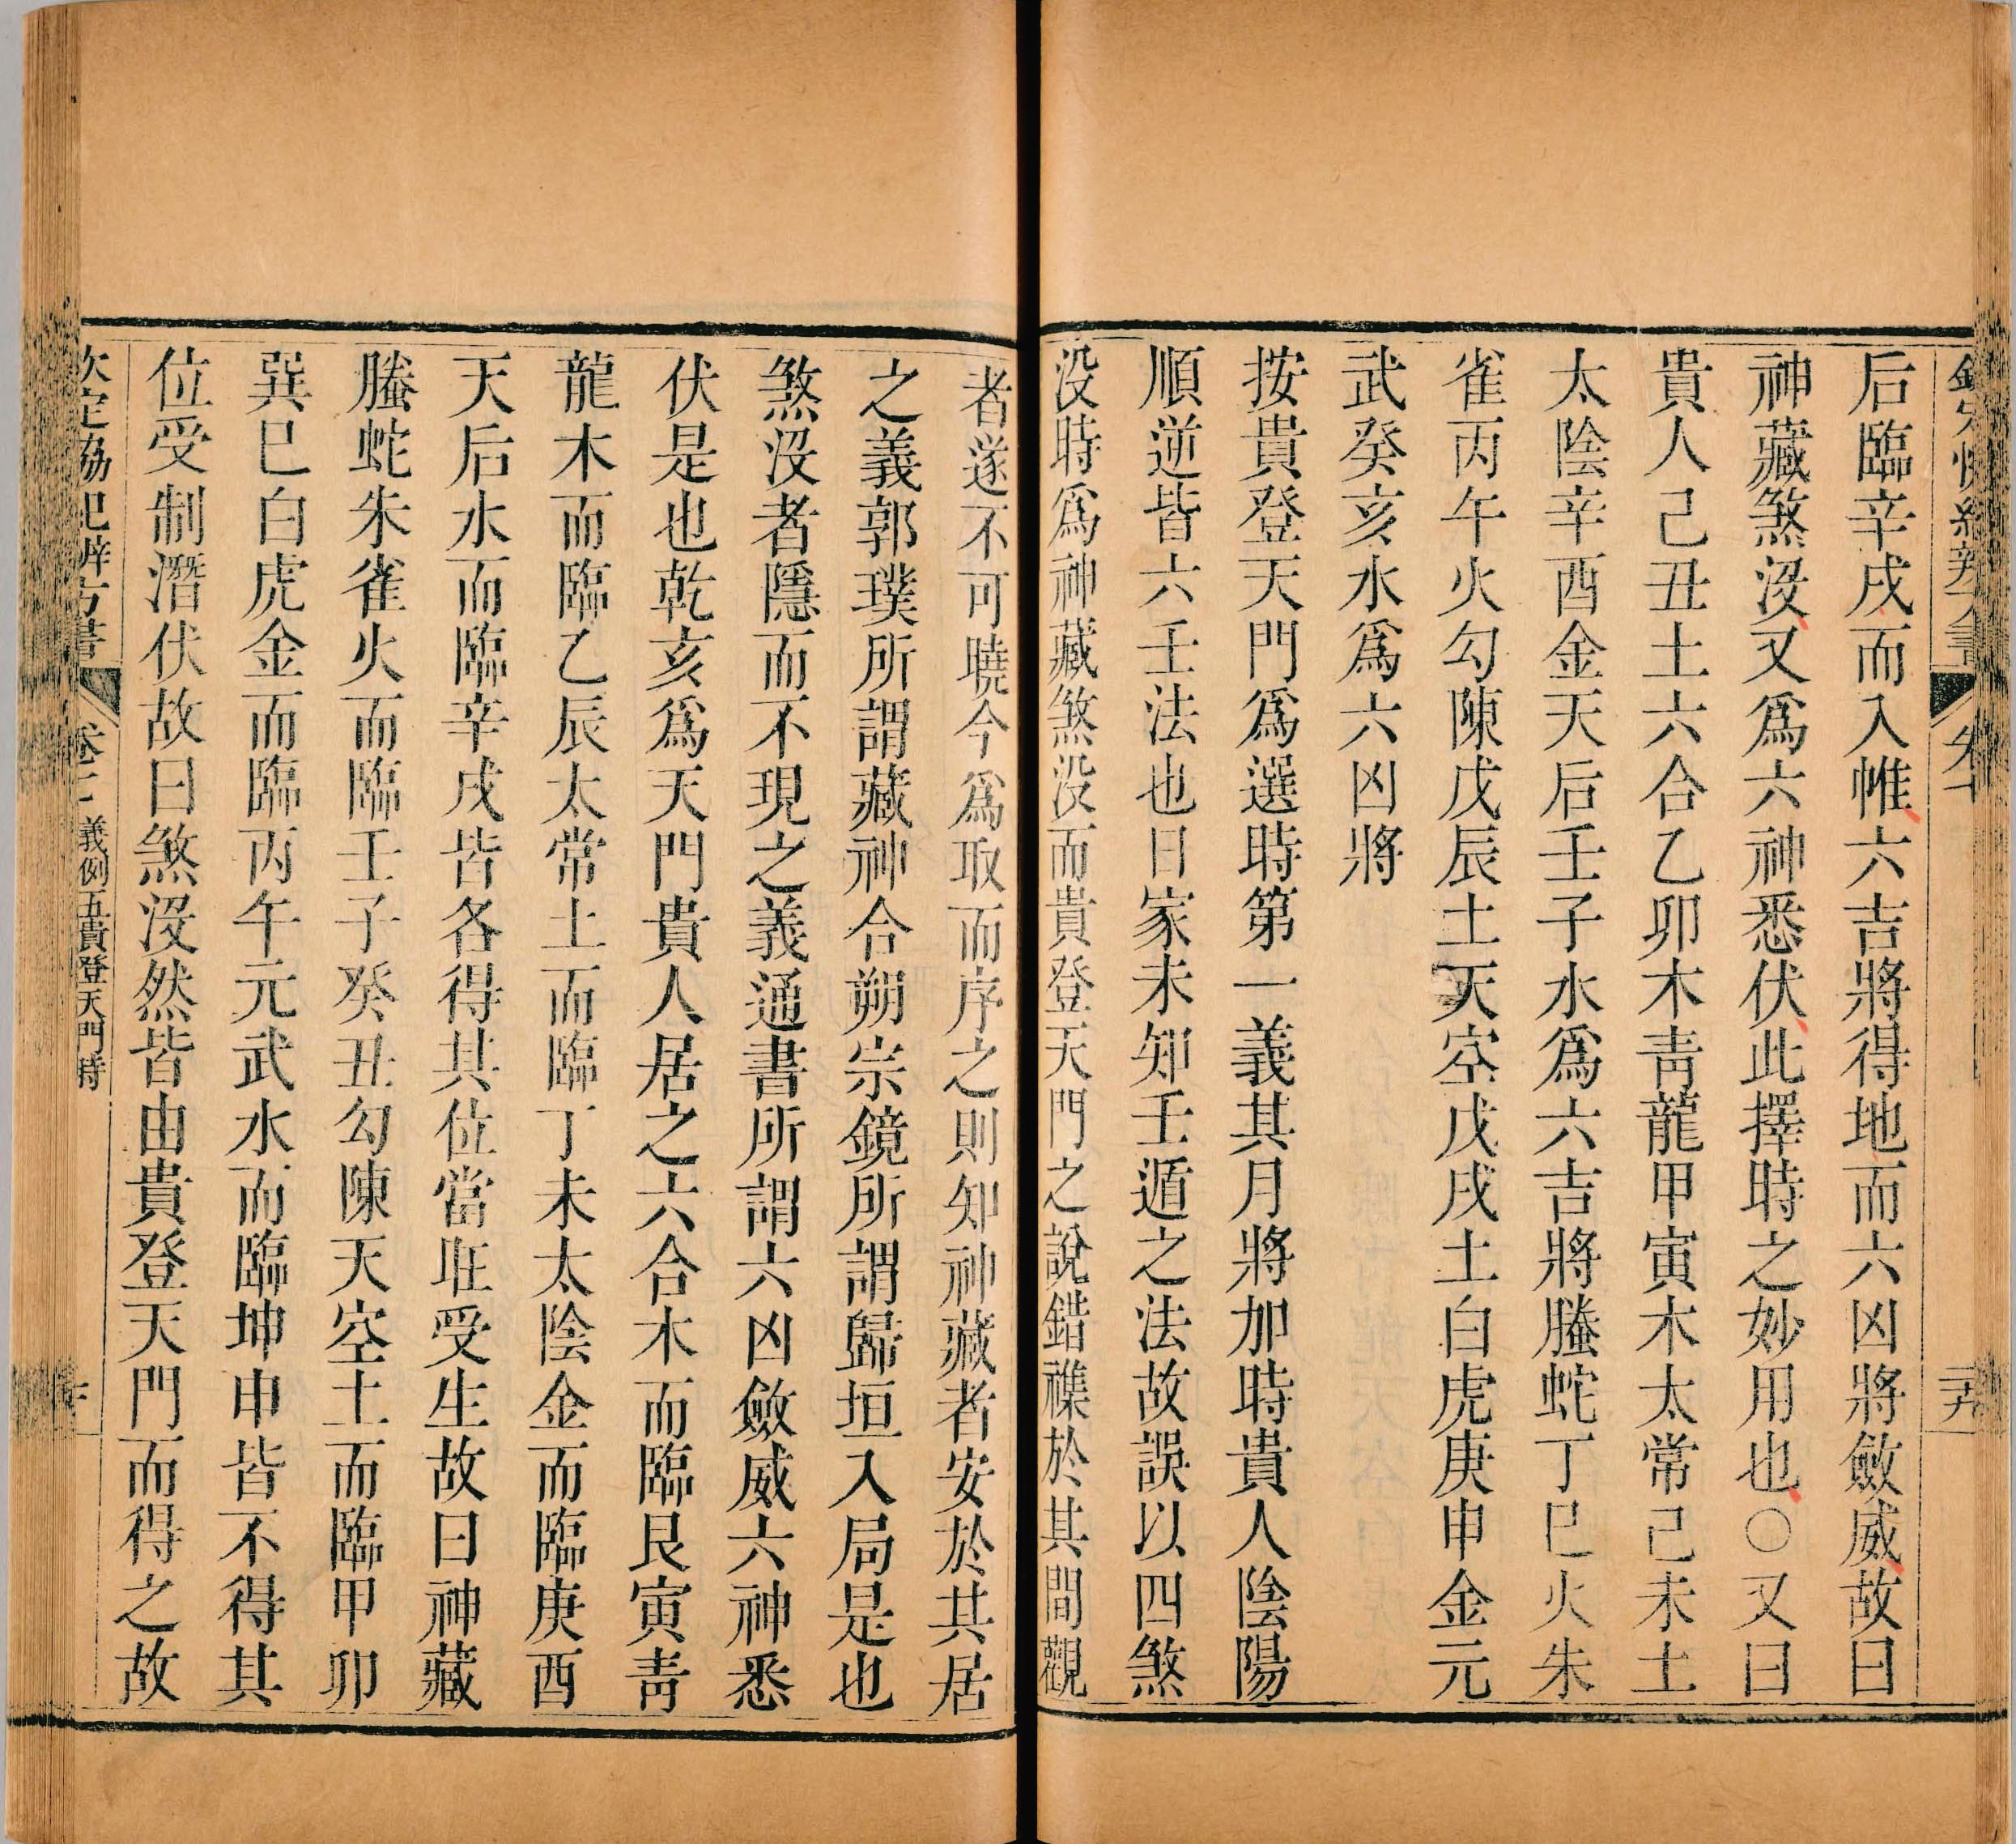 后臨辛戌而入帷六吉將得地而六凶將斂威故曰
神藏煞沒又爲六神悉伏此擇時之妙用也○又曰
貴人己丑土六合乙卯木青龍甲寅木太常己未土
太陰辛酉金天后壬子水爲六吉將螣蛇丁巳火朱
雀丙午火勾陳戊辰土天空戊戌土白虎庚申金元
武癸亥水爲六凶將
按貴登天門爲選時第一義其月將加時貴人陰陽
順逆皆六壬法也日家未知壬遁之法故誤以四煞
沒時爲神藏煞沒而貴登天門之說錯襍於其間觀
者遂不可曉今爲取而序之則知神藏者安於其居
之義郭璞所謂藏神合朔宗鏡所謂歸垣入局是也
煞沒者隱而不現之義通書所謂六凶斂威六神悉
伏是也乾亥爲天門貴人居之六合木而臨艮寅青
龍木而臨乙辰太常土而臨丁未太陰金而臨庚酉
天后水而臨辛戌皆各得其位當旺受生故曰神藏
螣蛇朱雀火而臨壬子癸丑勾陳天空土而臨甲卯
巽巳白虎金而臨丙午元武水而臨坤申皆不得其
位受制潛伏故曰煞沒然皆由貴登天門而得之故
欽定協紀辨方書 義例五貴登天門時